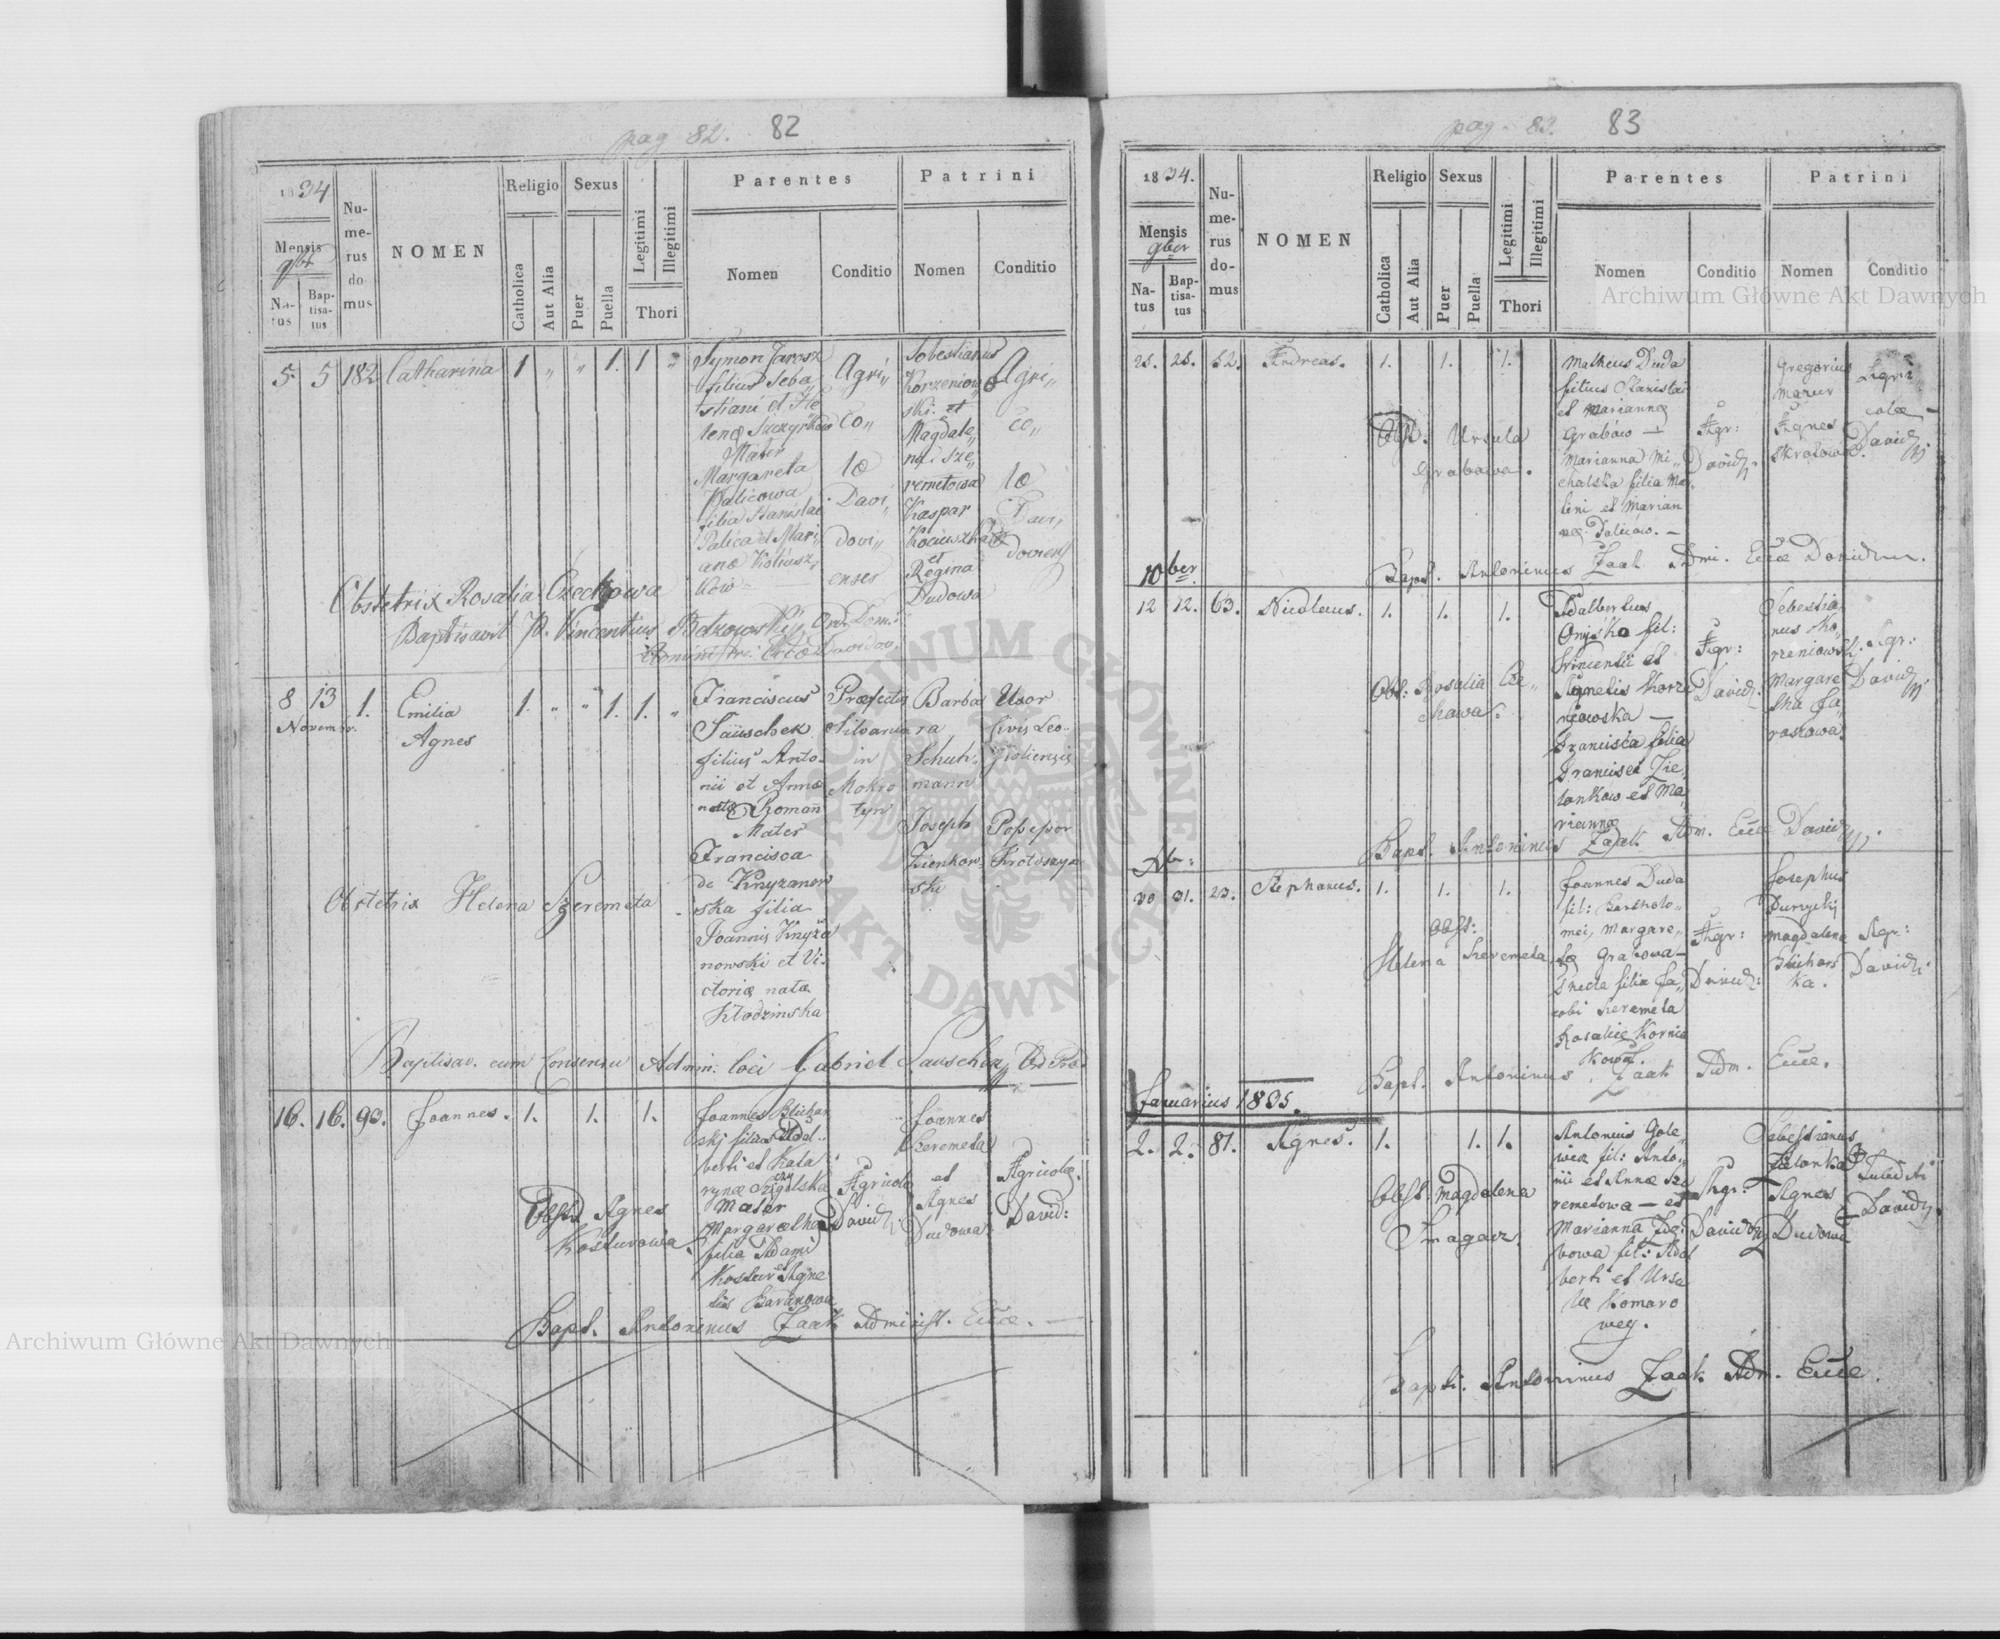 pag 82. 82
1834
Mensis
9br
Na-
tus
Bap-
tisa-
tus
Nu-
me-
rus
do-
mus
NOMEN
Religio
Catholica
Aut Alia
Sexus
Puer
Puella
Legitimi
Illegitimi
Thori
Parentes
Nomen
Conditio
Patrini
Nomen
Conditio
5 5 182 Catharina 1 " " 1. 1 "
Symon Jarosz
filius Seba
stiani et He
lenæ
Mater
Margareta
Palicowa
filia Stanislai
Palica et Mari
anæ
Agri"
co"
læ
Davi"
dovi"
enses
Sobestianus
Korzeniow
ski et
Magdale"
na Sze"
remetowa
Kaspar
et
Regina
Dudowa
Agri"
co"
læ
Davi"
doviens
Obstetrix Rosalia Czechowa
Baptisavit P. Vincentius
8 13 1. Emilia
Agnes
Novembr.
1. " " 1. 1. "
Franciscus
Jauschek
filius Anto-
nii et Annæ
natæ Roman
Mater
Francisca
de Knyzanow
ska filia
Joannis Knyża
nowski et Vi-
ctoria nata
Kłodzinska
Præfectus
Silvarum
in
Mokro
tyn
Barba
ra
Schuh-
mann
Joseph
Zienkow
ski
Uxor
Civis Leo-
poliensis
Possessor
Obstetrix Helena Szeremeta
Baptisav. cum Consensu Admin. loci Gabriel
16. 16. 90. Joannes. 1. 1. 1.
Joannes Blichar
skj filius Adal-
berti et Kata
rynæ
Mater
Margaretha
filia Adami
Kostur et Agne
tis Baranowa
Agricolæ
David:
Joannes
Szeremeta
et
Agnes
Dudowa
Agricolæ.
David:
Obst. Agnes
Kosturowa.
Bapt. Antoninus Zaak Administ. Eccæ.
pag. 83. 83
1834.
Mensis
9ber
Na-
tus
Bap-
tisa-
tus
Nu-
me-
rus
do-
mus
NOMEN
Religio
Catholica
Aut Alia
Sexus
Puer
Puella
Legitimi
Illegitimi
Thori
Parentes
Nomen
Conditio
Patrini
Nomen
Conditio
25. 25. 52. Andreas. 1. 1. 1.
Matheus Duda
filius Stanislai
et Mariannæ
Grabow —
Marianna Mi"
chalska filia Mar
tini et Marian
næ
Agr:
David.
Gregorius
Mazur
Agnes
Skrotowa.
Agri
colæ —
David
Obst. Ursula
Grabowa.
Bapt. Antoninus Zaak Admi. Eccæ
10ber
12 12. 63. Nicolaus. 1. 1. 1.
Adalbertus
Onyśko fil:
Vincentii et
Agnetis Korze
niowska —
Francisca filia
Francisci Zie"
lonkow et Ma"
riannæ
Agr:
David.
Sebestia
nus Ko"
rzeniowski.
Margare
tha Ja"
roszowa.
Agr:
David
Obst: Rosalia Cze"
chowa.
Bapt. Antoninus Zaak Adm. Eccæ David
30 31. 23. Stephanus. 1. 1. 1.
Joannes Duda
fil: Bartholo-
mei, Margare"
tæ Grabowa —
Thecla filia Ja"
cobi Szeremeta
Rosaliæ Kornia
kowa.
Agr:
David:
Josephus
Magdalena
Blichars
ka.
Agr:
David.
Obst:
Helena Szeremeta.
Bapt. Antoninus Zaak Adm. Eccæ.
Januarius 1835.
2. 2. 87. Agnes. 1. 1. 1.
Antonius Gole"
wicz fil: Anto"
nii et Annæ Sze
remetowa — et
Marianna
bowa fil: Adal
berti et Ursu
læ Komaro
wey.
Agr:
David
Sebestianus
Zielonka
Agnes
Dudowa
David
Obst. Magdalena
Smagacz.
Bapti. Antoninus Zaak Adm. Eccæ.
Archiwum Główne Akt Dawnych
Archiwum Główne Akt Dawnych
ARCHIWUM GŁÓWNE AKT DAWNYCH